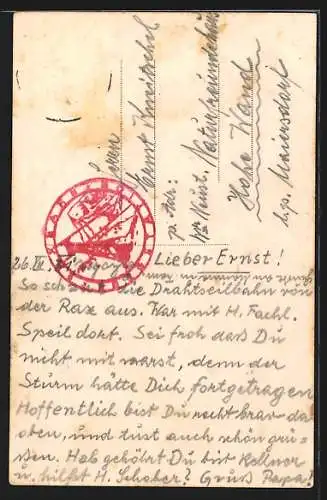 Herrn
Ernst
p. Adr:
Wr. Neust. Naturfreundehaus
Hohe Wand
b.p. Maiersdorf
26. IV.
Lieber Ernst!
So schaut die Drahtseilbahn von
der Rax aus. War mit H. Fachl.
Speil dort. Sei froh daß Du
nicht mit warst, denn der
Sturm hätte Dich fortgetragen
Hoffentlich bist Du recht brav da
oben, und tust auch schön grü-
ßen. Hab gehöhrt Du bist Kellner
u. hilfst H. Schober? Gruß Papa!